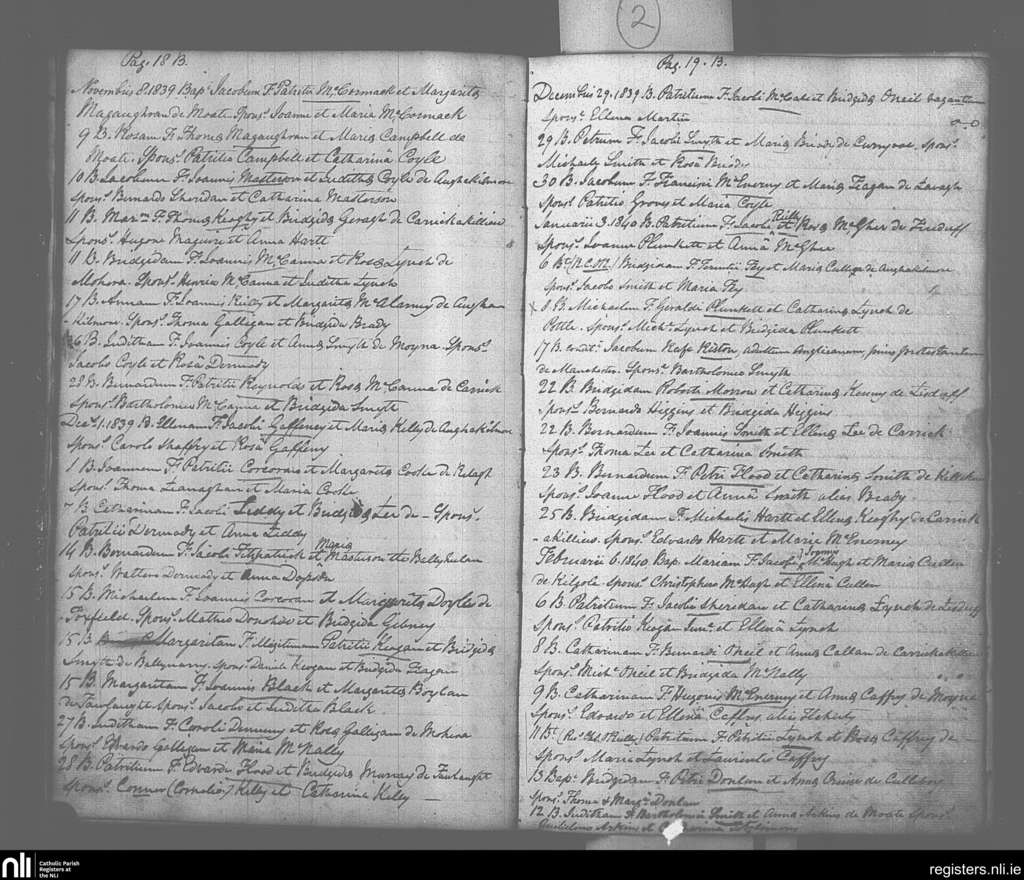 Pag. 18 B.
Novembris 8. 1839 Bap. Jacobum F. Patritii McCormack et Margaritæ
Magaughran de Moati. Spons. Joanne et Maria McCormack
9 B. Rosam F. Thomæ Magaughran et Mariæ Campbell de
Moati. Spons. Patritio Campbell et Catharinâ Coyle
10 B. Jacobum F. Joannis Masterson et Judithæ Coyle de Aughakilmore
Spons. Bernardo Sheridan et Catharina Masterson
11 B. Mar F. Thomæ Keoghy et Bridgidæ Geragh de Carrickakillew
Spons. Hugone Maguire et Anna Hartt
11 B. Bridgidam F. Joannis McCanna et Rosæ Lynch de
Mohera. Spons. Henrico McCanna et Juditha Lynch
17 B. Annam F. Joannis Reidy et Margaritæ McAlarney de Augha
kilmore. Spons. Thoma Galligan et Bridgida Brady
26 B. Juditham F. Joannis Coyle et Annæ Smyth de Moyna. Spons.
Jacobo Coyle et Rosâ Dermody
28 B. Bernardum F. Patritii Reynolds et Rosæ McCanna de Carrick
Spons. Bartholomeo McCanna et Bridgida Smyth
Dec. 1. 1839 B. Ellenam F. Jacobi Gaffeney et Mariæ Kelly de Aughakilmore
Spons. Carolo Shaffry et Rosâ Gaffeny
1 B. Joannem F. Patritii Corcoran et Margaritæ Cooke de Kilagh
Spons. Thoma Lianaghan et Maria Cooke
7 B. Catharinam F. Jacobi Leddy et Bridgidæ Lee de – Spons.
Patritii Dermody et Anna Leddy
14 B. Bernardum F. Jacobi Fitzpatrick et Mariæ Masterson Ballyhelan
Spons. Waltero Dermody et Anna
15 B. Michaelem F. Joannis Corcoran et Margaritæ Doyle de
Foyfield. Spons. Matheo Donohoe et Bridgida Gibney
15 B. Margaritam F. legitimam Patritii Keogan et Bridgidæ
Smyth de Ballynarry. Spons. Daniele Keogan et Bridgida Fagan
15 B. Margaritam F. Joannis Black et Margaritæ Boylan
de Spons. Jacobo et Juditha Black.
27 B. Juditham F. Caroli Denneny et Rosæ Galligan de Mohera
Spons. Edvardo Galligan et Maria McNally
28 B. Patritium F. Edvardi Flood et Bridgidæ Murray de
Spons. Connor (Cornelio) Kelly et Catharina Kelly
Pag. 19. B.
2
Decembris 29. 1839 B. Patritium F. Jacobi McCabe et Bridgidæ Oneil vagantium
Spons. Ellena Martin
29 B. Petrum F. Jacobi Smyth et Mariæ Brady de Spons.
Michaele Smith et Rosâ Brady
30 B. Jacobum F. Francisci McEnerny et Mariæ Fagan de Lavagh
Spons. Patritio Grony et Maria Coyle
Januarii 3. 1840 B. Patritium F. Jacobi Reilly et Rosæ McGher de Fieduff
Spons. Joanne Plunkett et Annâ McGher
6 B. Bridgidam F. Terentii Fey et Mariæ de Aughakilmore
Spons. Jacobo Smith et Maria Fey
8 B. Michaelem F. Geraldi Plunkett et Catharinæ Lynch de
Pottle. Spons. Mich. Lynch et Bridgida Plunkett
17 B. condit. Jacobum Rafe Riston, adultum Anglicanum, prius protestantem
de Manchester. Spons. Bartholomeo Smyth
22 B. Bridgidam Roberti Morrow et Catharinæ Kenny de Lisduff
Spons. Bernardo Higgins et Bridgida Higgins
22 B. Bernardum F. Joannis Smith et Ellenæ Lee de Carrick
Spons. Thoma Lee et Catharina Smith
23 B. Bernardum F. Petri Flood et Catharinæ Smith de
Spons. Joanne Flood et Annâ Smith alias Brady.
25 B. Bridgidam F. Michaelis Hartt et Ellenæ Keoghy de Carrick
-akillew. Spons. Edvardo Hartt et Maria McEnerney
Februarii 6. 1840 Bap. Mariam F. Jacobi McHugh et Mariæ Cullen
de Kilgola Spons. Christophero McHugh et Ellenâ Cullen
6 B. Patritium F. Jacobi Sheridan et Catharinæ Lynch de Lisduff
Spons. Patritio Keogan Junr. et Ellenâ Lynch
8 B. Catharinam F. Bernardi Oneil et Annæ Callan de Carrickakillew
Spons. Mich. Oneil et Bridgida McNally
9 B. Catharinam F. Hugonis McEnerny et Annæ Caffry de Moyna
Spons. Edvardo et Ellenâ Caffry alias Flaherty
11 B. Patritium F. Patritii Lynch et Rosæ Caffrey de
Spons. Maria Lynch et Laurentio Caffry
13 Bap. Bridgidam F. Petri Donlan et Annæ de
Spons. Thoma & Marg. Donlan
12 B. Juditham F. Bartholomei Smith et Annæ Arkins de Moate Spons.
Gulielmo Arkins et
nli
Catholic Parish
Registers at
the NLI
registers.nli.ie